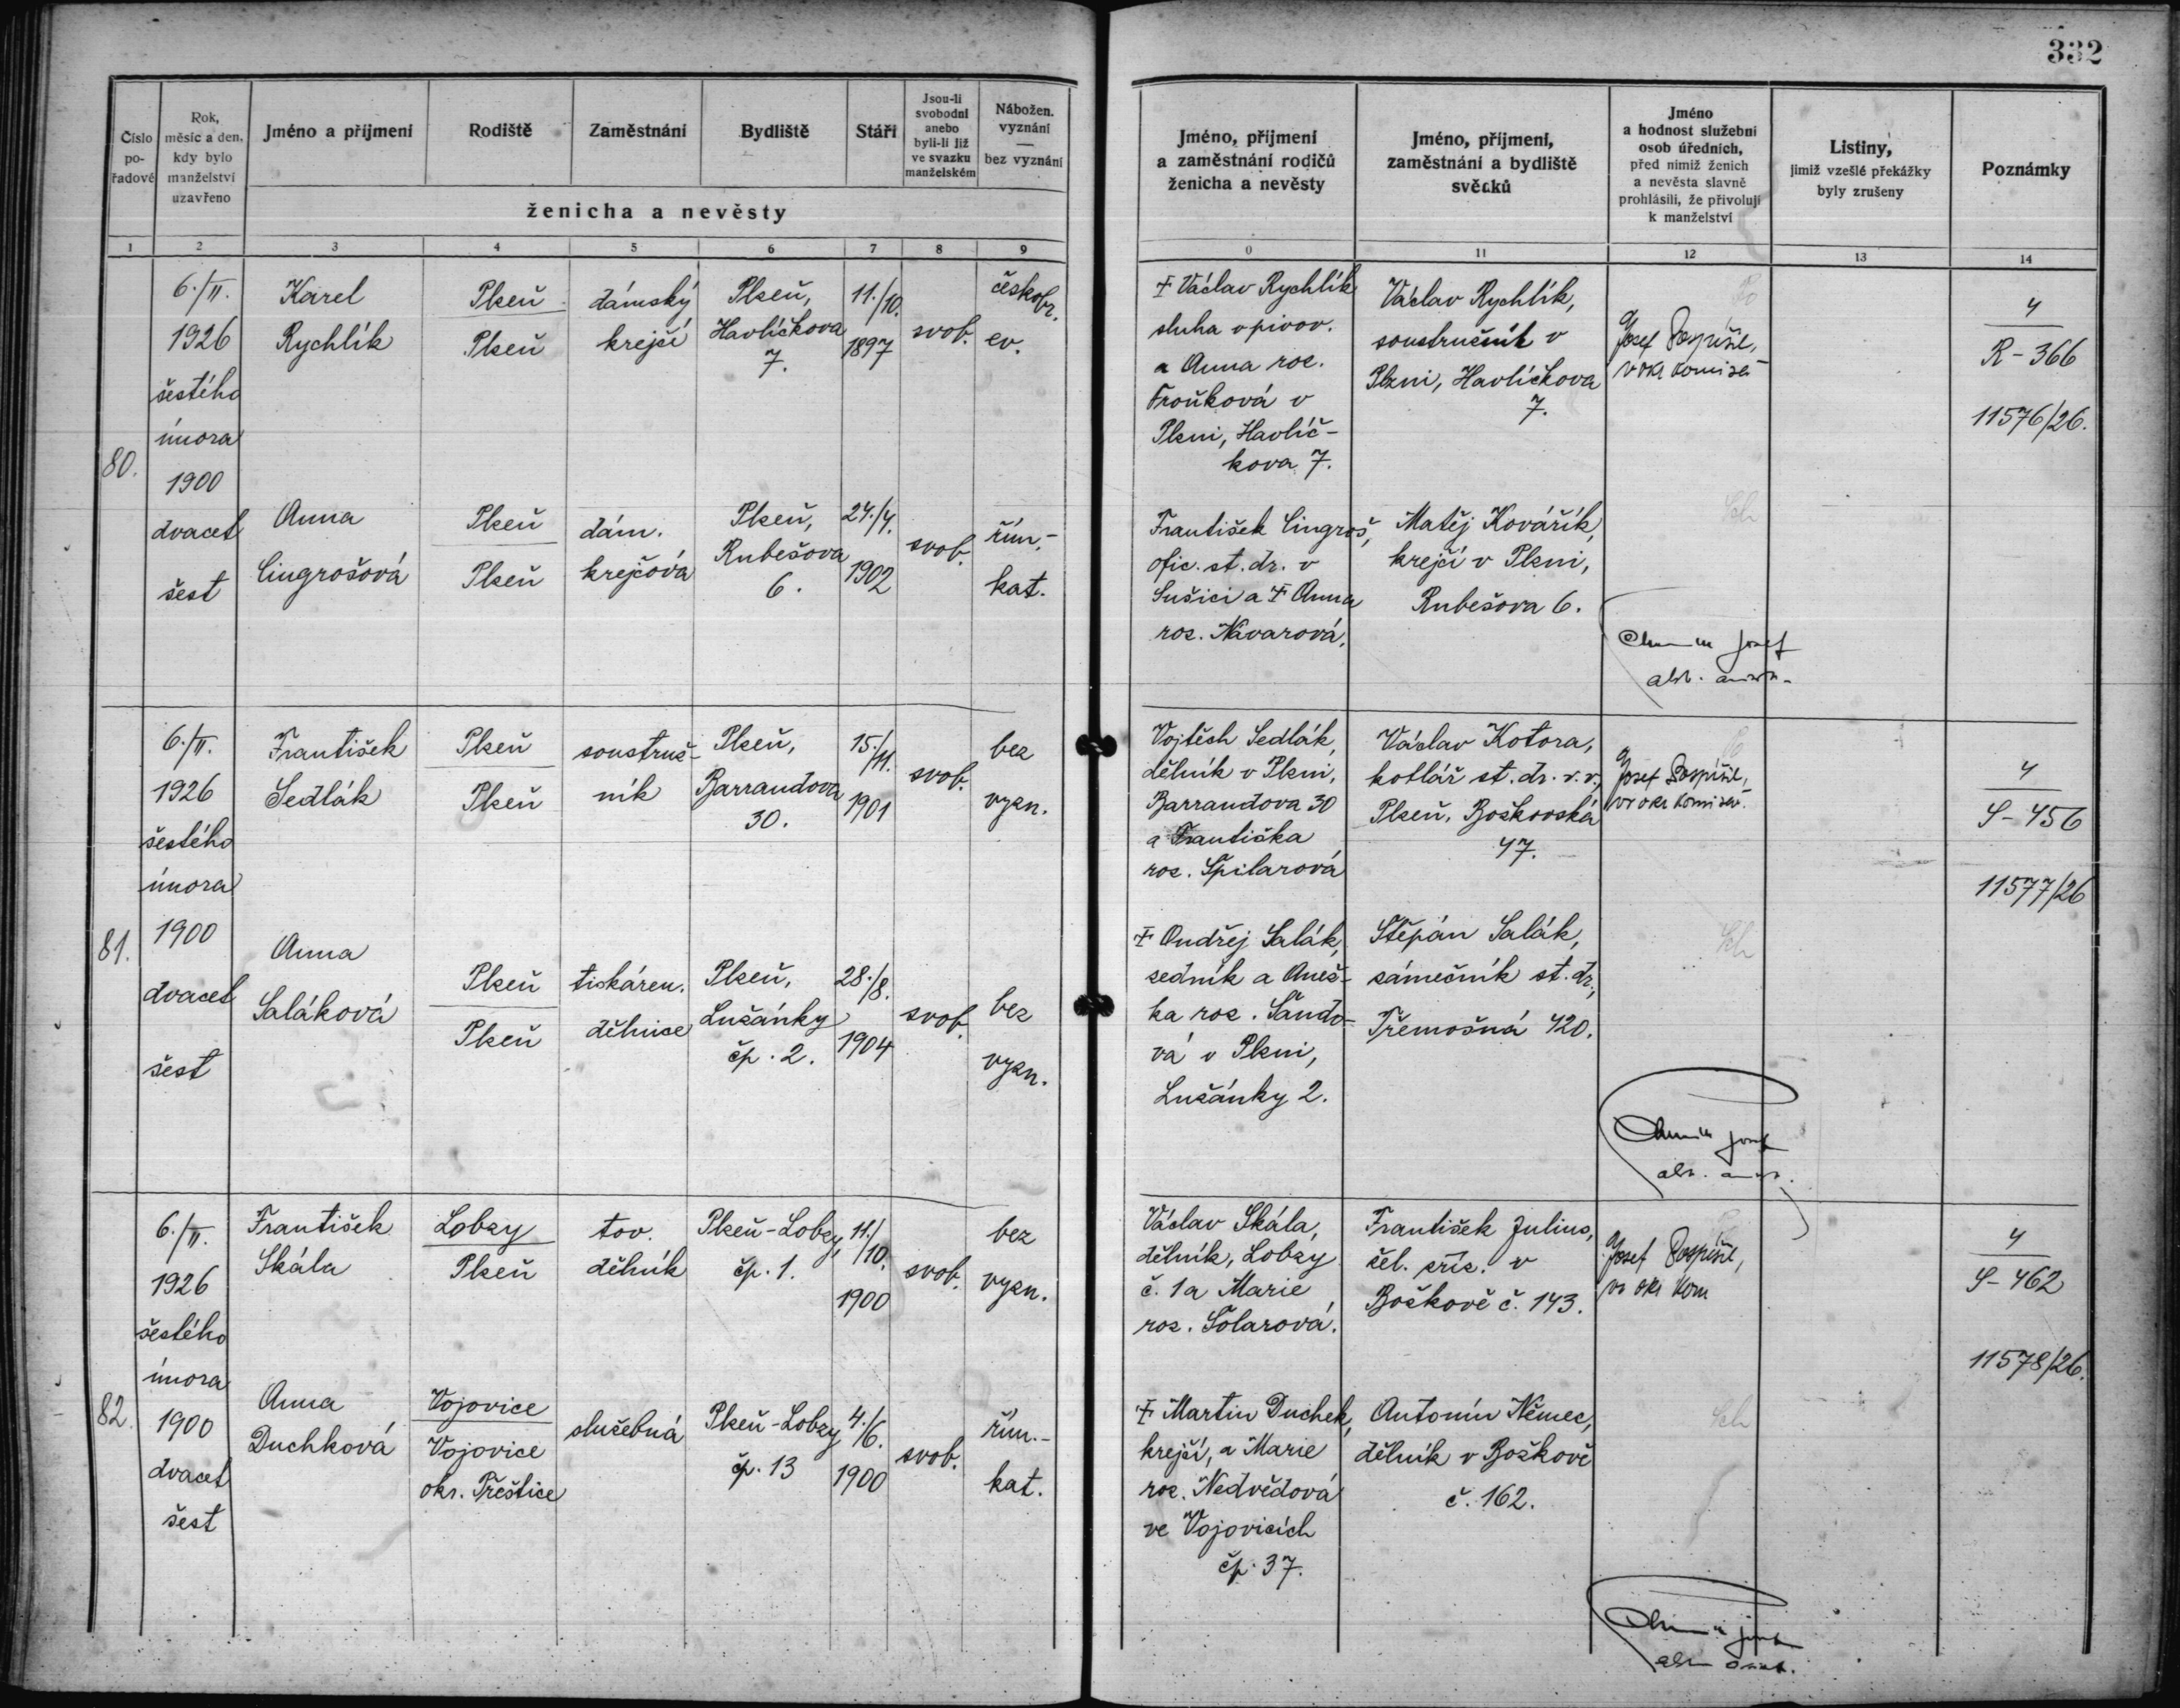 332
Číslo
po-
řadové
Rok,
měsíc a den,
kdy bylo
manželství
uzavřeno
Jméno a příjmení
Rodiště
Zaměstnání
Bydliště
Stáří
Jsou-li
svobodni
anebo
byli-li již
ve svazku
manželském
Nábožen.
vyznání
—
bez vyznání
ženicha a nevěsty
Jméno, příjmení
a zaměstnání rodičů
ženicha a nevěsty
Jméno, příjmení,
zaměstnání a bydliště
svědků
Jméno
a hodnost služební
osob úředních,
před nimiž ženich
a nevěsta slavně
prohlásili, že přivolují
k manželství
Listiny,
jimiž vzešlé překážky
byly zrušeny
Poznámky
1 2 3 4 5 6 7 8 9 0 11 12 13 14
80.
6./II.
1926
šestého
února
1900
dvacet
šest
Karel
Rychlík
Plzeň
Plzeň
dámský
krejčí
Plzeň,
Havlíčkova
7.
11./10.
1897
svob.
českobr.
ev.
‡ Václav Rychlík
sluha v pivov.
a Anna roz.
Froňková v
Plzni, Havlíč-
kova 7.
Václav Rychlík,
soustružník v
Plzni, Havlíčkova
7.
Josef Pospíšil,
v okr komisař
4
R-366
11576/26.
Anna
Cingrošová
Plzeň
Plzeň
dám.
krejčová
Plzeň,
Rubešova
6.
24./4.
1902
svob.
řím.-
kat.
František Cingroš,
ofic. st. dr. v
Sušici a ‡ Anna
roz. Navarová.
Matěj Kovářík,
krejčí v Plzni,
Rubešova 6.
Josef
81.
6./II.
1926
šestého
února
1900
dvacet
šest
František
Sedlák
Plzeň
Plzeň
soustruž-
ník
Plzeň,
Barrandova
30.
15./11.
1901
svob.
bez
vyzn.
Vojtěch Sedlák,
dělník v Plzni,
Barrandova 30
a Františka
roz. Špilarová
Václav Kotora,
kotlář st. dr. v. v.,
Plzeň, Božkovská
47.
Josef Pospíšil,
vr okr komisař.
4
S-456
11577/26
Anna
Saláková
Plzeň
Plzeň
tiskáren.
dělnice
Plzeň,
Lužánky
čp. 2.
28./8.
1904
svob.
bez
vyzn.
‡ Ondřej Salák,
zedník a Anež-
ka roz. Šando-
vá v Plzni,
Lužánky 2.
Štěpán Salák,
zámečník st. dr.,
Třemošná 420.
82.
6./II.
1926
šestého
února
1900
dvacet
šest
František
Skála
Lobzy
Plzeň
tov.
dělník
Plzeň-Lobzy,
čp. 1.
11./10.
1900
svob.
bez
vyzn.
Václav Skála,
dělník, Lobzy
č. 1 a Marie
roz. Šolarová.
František Julius,
žel. zříz. v
Božkově č. 143.
Josef Pospíšil,
vr okr kom
4
S-462
11578/26.
Anna
Duchková
Vojovice
Vojovice
okr. Přeštice
služebná
Plzeň-Lobzy
čp. 13
4./6.
1900
svob.
řím.-
kat.
‡ Martin Duchek,
krejčí, a Marie
roz. Nedvědová
ve Vojovicích
čp. 37.
Antonín Němec,
dělník v Božkově
č. 162.